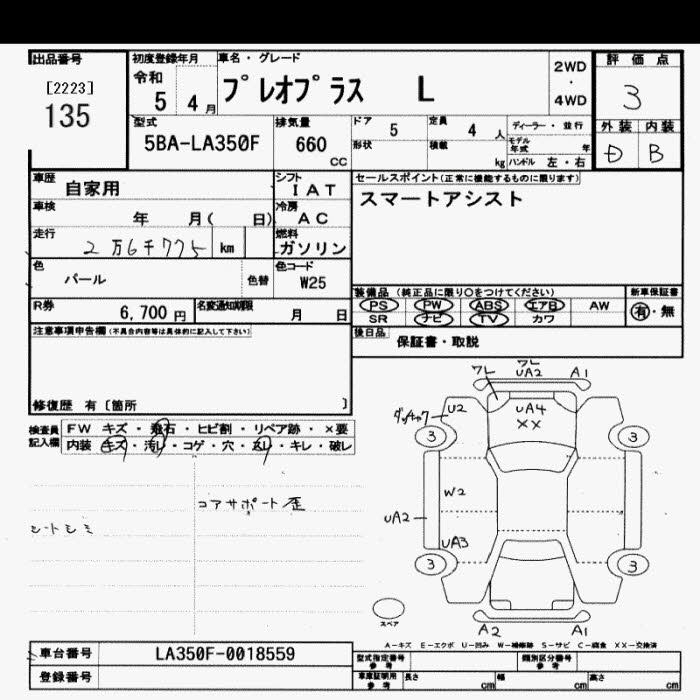 出品番号
[2223]
135
初度登録年月
令和
5 4月
車名・グレード
プレオプラス L
2WD
・
4WD
評価点
3
外装 内装
D B
型式
5BA-LA350F
排気量
660
CC
ドア 5
定員 4 人
ディーラー・並行
形状
積載 kg
モデル年式 年
ハンドル 左・右
車歴 自家用
シフト
IAT
セールスポイント(正常に機能するものに限ります)
スマートアシスト
車検 年 月( 日)
冷房
AC
走行 2万6千775 km
燃料
ガソリン
色
パール
色替
色コード
W25
装備品(純正品に限り○をつけてください)
PS PW ABS エアB AW
SR ナビ TV カワ
新車保証書
有・無
R券 6,700円
名変通知期限 月 日
後日品 保証書・取説
注意事項申告欄(不具合内容等は具体的に記入して下さい)
修復歴 有〔箇所 〕
検査員
記入欄
FW キズ・飛石・ヒビ割・リペア跡・×要
内装 キズ・汚れ・コゲ・穴・スレ・キレ・破レ
コアサポート歪
シートシミ
ワレ
ワレ
UA2
A1
U2
UA4
XX
3
3
W2
UA2
UA3
3
3
スペア
A2
A1
A-キズ E-エクボ U-凹み W-補修跡 S-サビ C-腐食 XX-交換済
車台番号 LA350F-0018559
登録番号
型式指定番号
参考
類別区分番号
参考
車庫証明用
参考
長さ cm
幅 cm
高さ cm